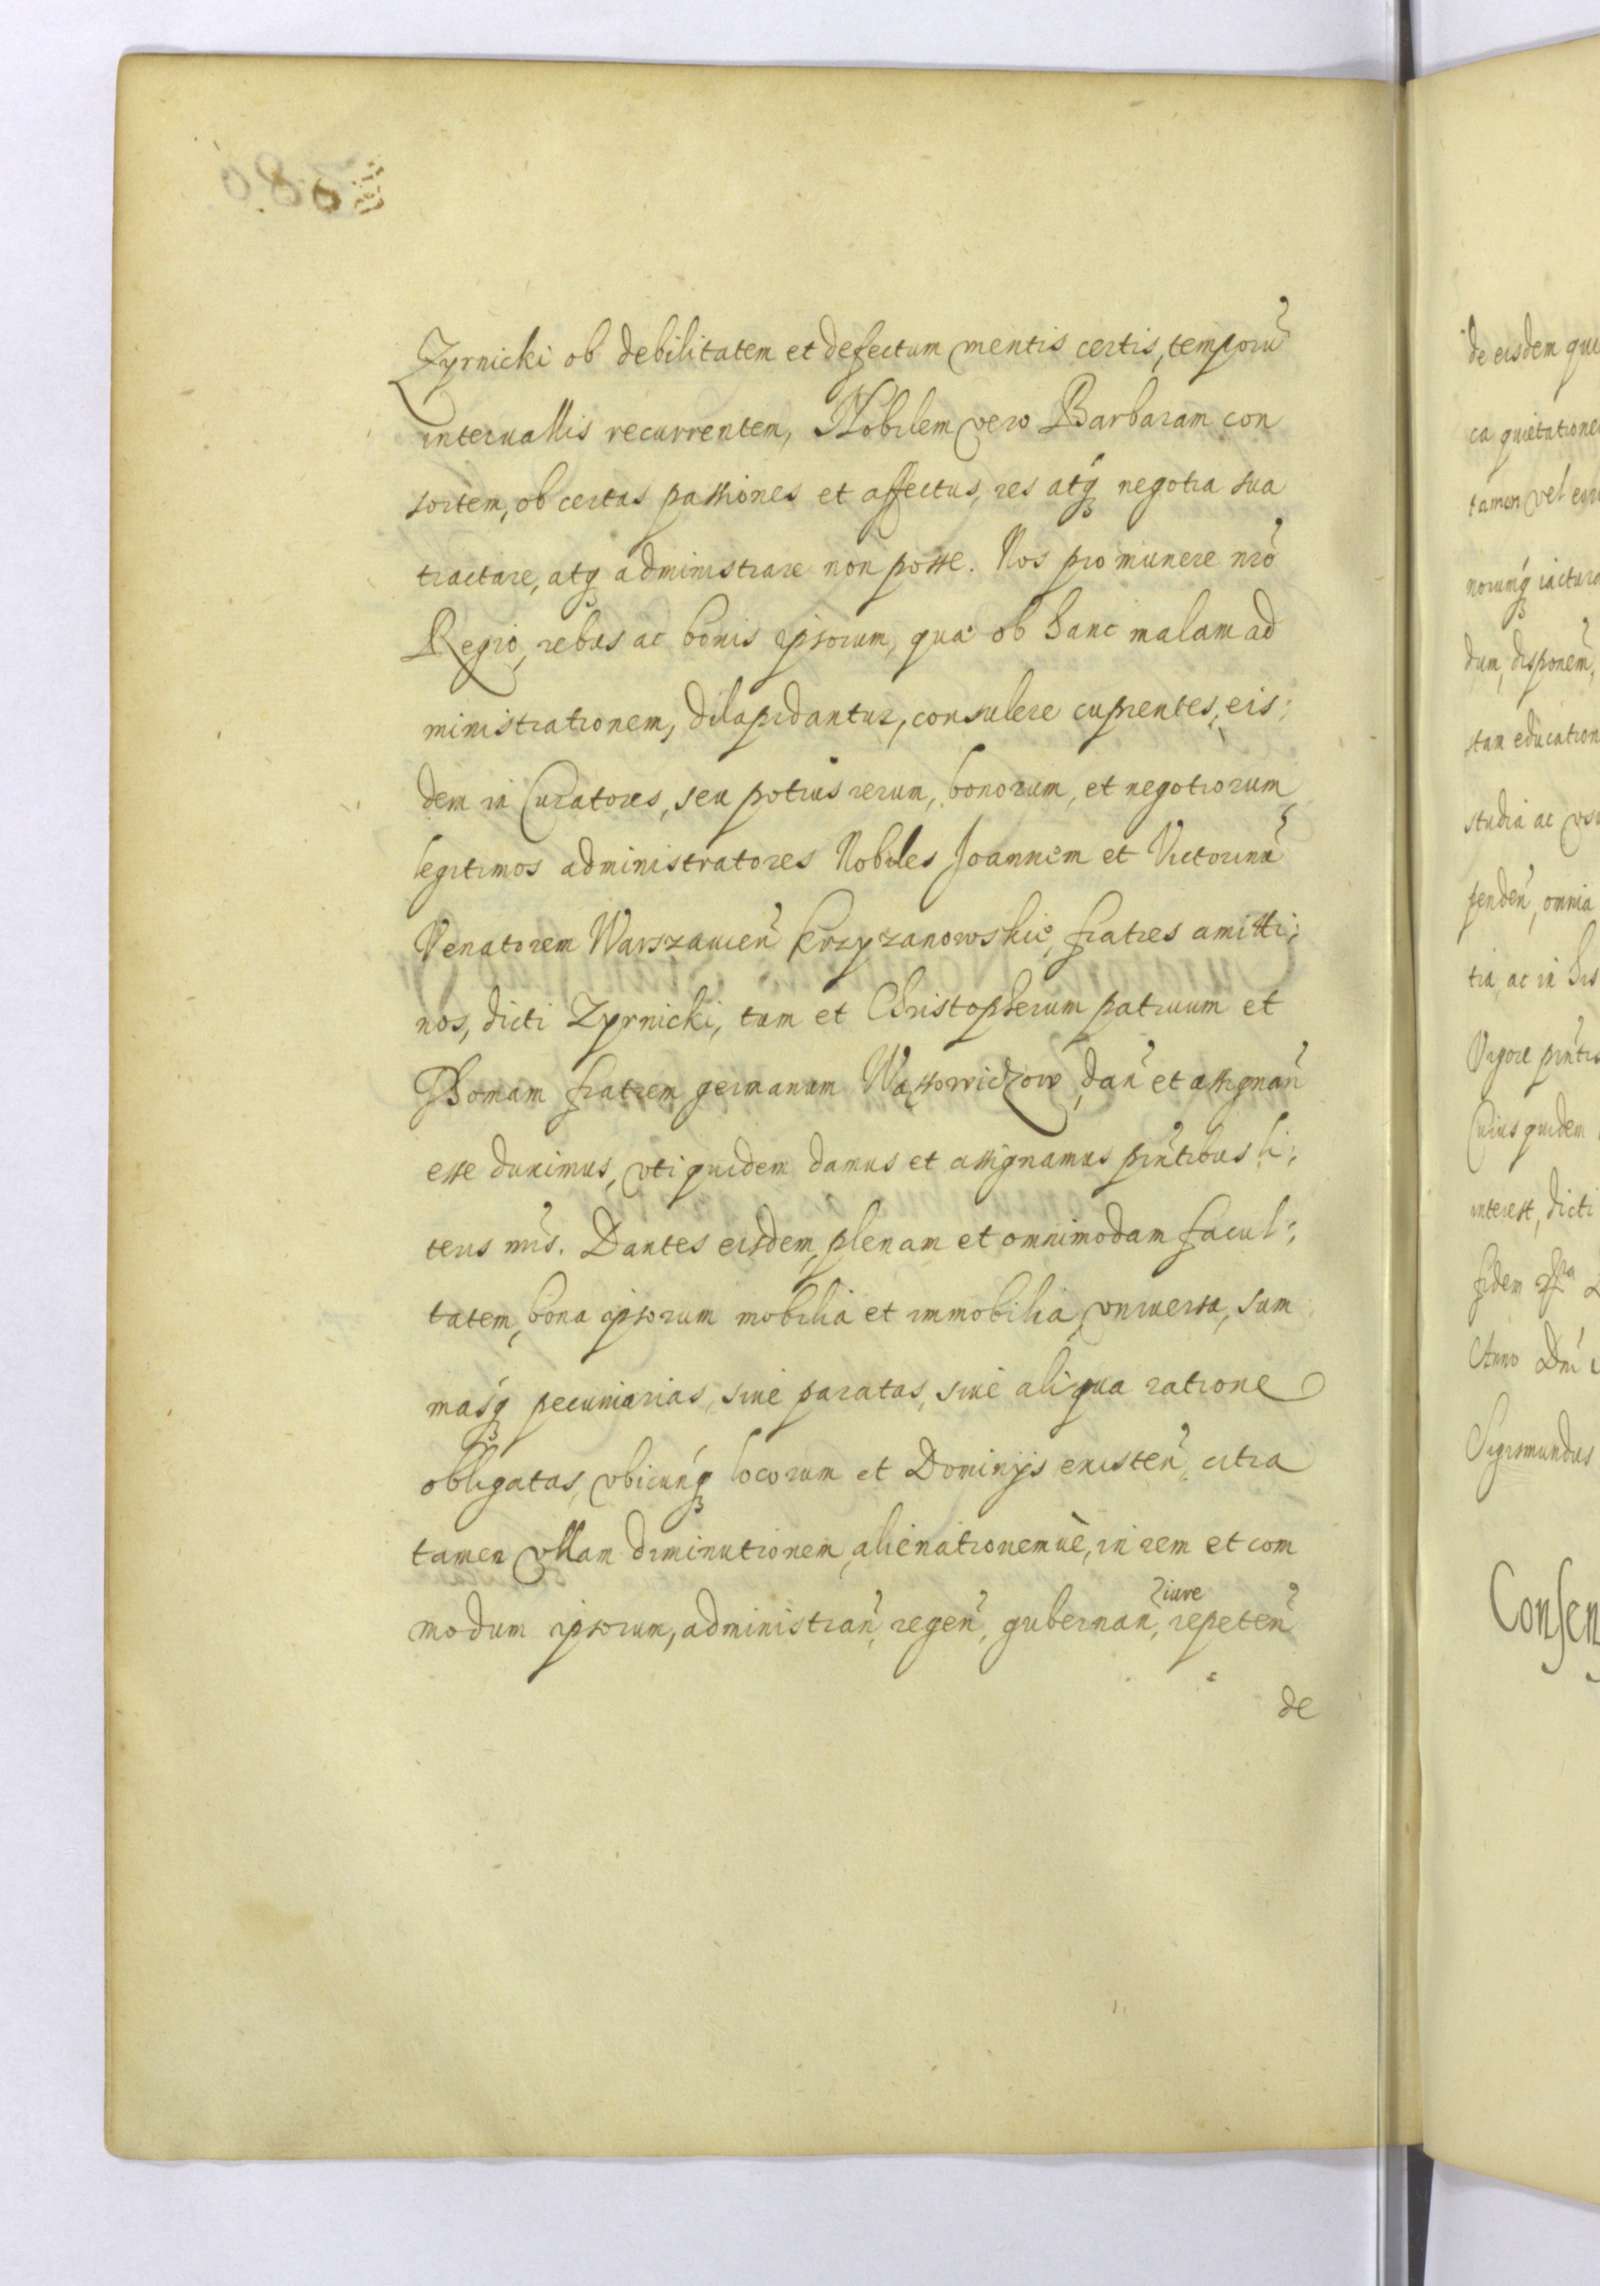 Zyrnicki ob debilitatem et defectum mentis certis, temporũ
interuallis recurrentem, Nobilem vero Barbaram con
sortem, ob certas passiones et affectus, res atq́ negotia sua
tractare, atq́ administrare non posse. Nos pro munere nrõ
Regio, rebus ac bonis ipsorum, quæ ob hanc malam ad
ministrationem, dilapidantur, consulere cupientes, eis:
dem in Curatores, seu potius rerum, bonorum, et negotiorum
legitimos administratores Nobiles Joannem et Victorinũ
Venatorem Warszauien̄ Krzyzanowskie, fratres amitti:
nos, dicti Zyrnicki, tum et Christopherum patruum et
Thomam fratrem germanum Wassowiczow, dan̄ et assignan̄
esse duximus, vti quidem damus et assignamus prñtibus li:
teris nrĩs. Dantes eisdem, plenam et omnimodam facul:
tatem, bona ipsorum mobilia et immobilia, vniuersa, sum
masq́ pecuniarias, siue paratas, siue aliqua ratione
obligatas, vbicunq́ locorum et Dominijs existen̄, citra
tamen vllam diminutionem, alienationemuè, in rem et com
modum ipsorum, administran̄, regen̄, gubernan̄, iure repeten̄
de
de eisdem qui
ca quietatione
tamen vel
norumq́ iactura
dum, disponem̄,
stam education
studia ac vsu
penden̄, omnia
tia, ac in his
Vigore prñtis
Cuius quidem
interest, dicti
fidem
Anno Dnĩ
Sigismundus
Consen